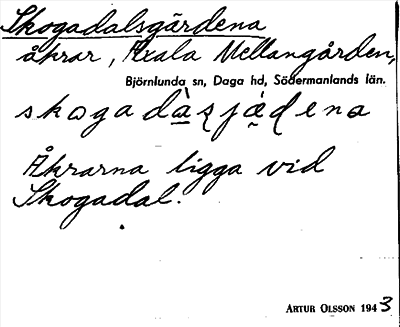 Skogadalsgärdena
åkrar, Axala Mellangården,
Björnlunda sn, Daga hd, Södermanlands län.
skogadàʂjæ̀ɖena
Åkrarna ligga vid
Skogadal.
ARTUR OLSSON 1943